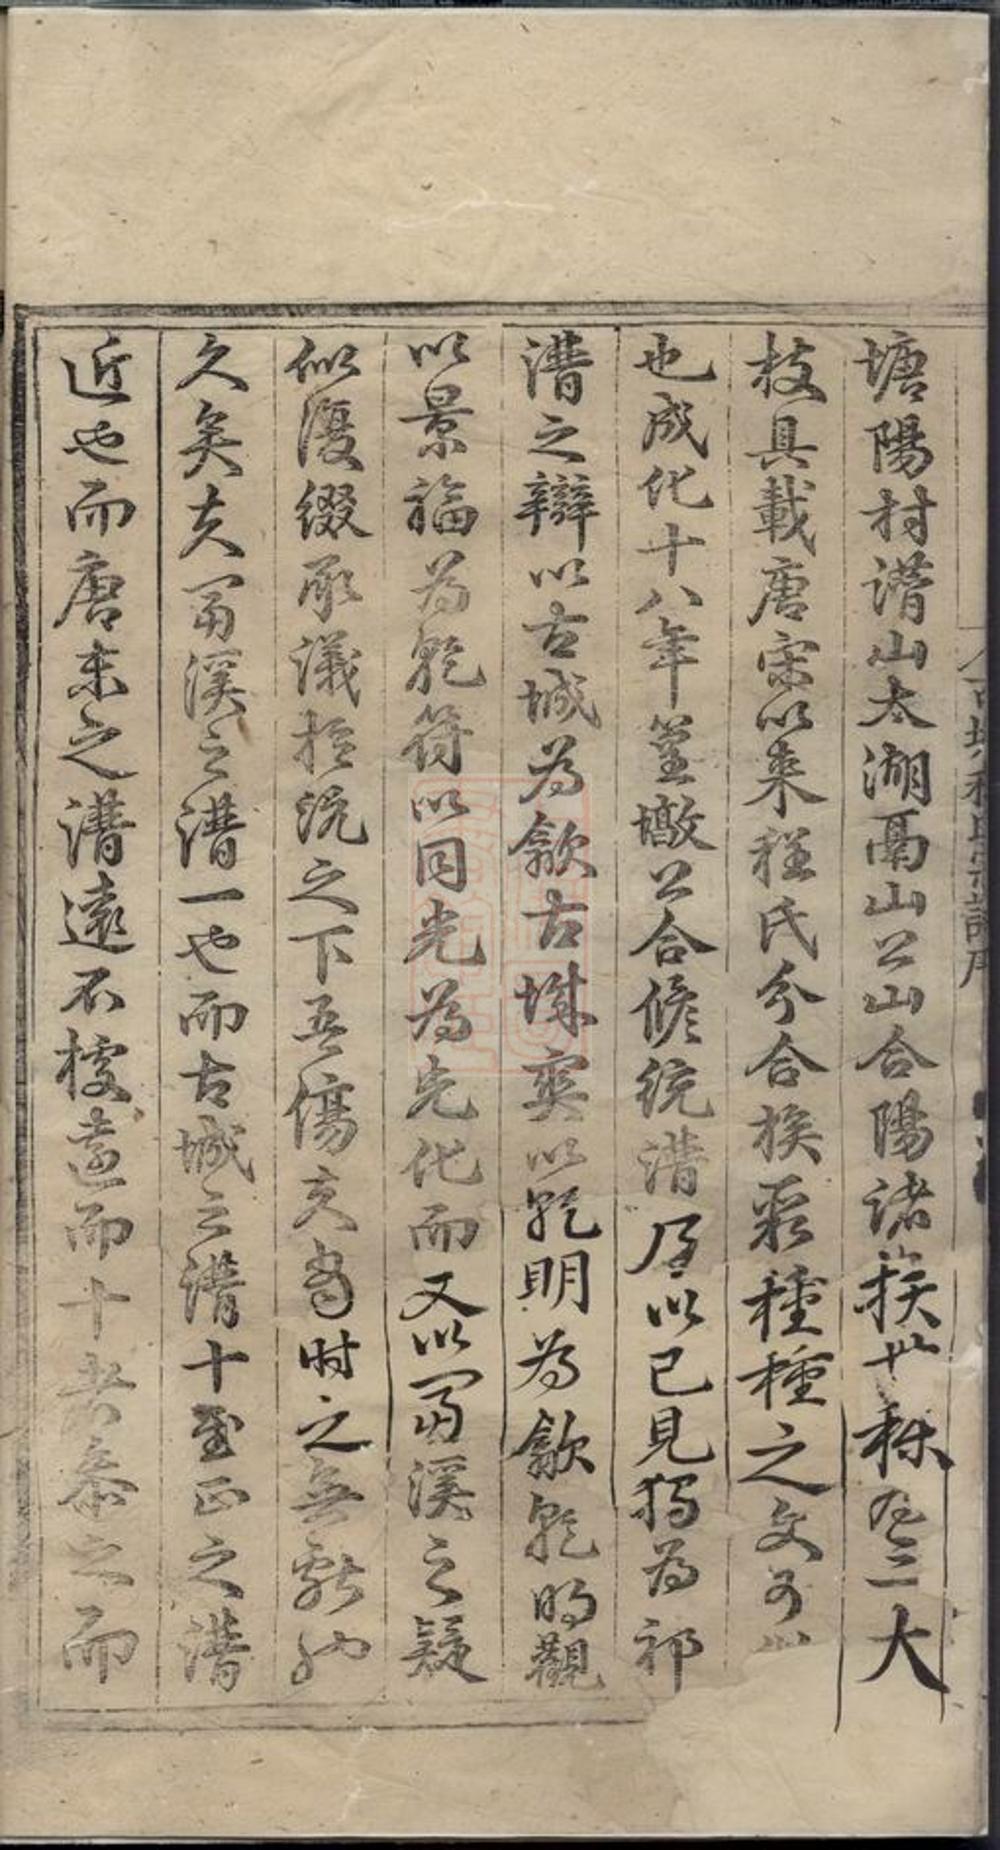 塘陽村譜山太湖鬲山公山合陽諸族世稱為三大
枝具載唐宋以來程氏分合族系種種之文可以
也成化十八年篁墩公合脩統譜序以已見獨為祁
譜之辯以古城為歙古城突以乾明為歙乾明觀
以景福為乾符以同光為光化而又以善溪之疑
似復綴承議於統之下吾傷夫當時之無
久矣夫善溪之譜一也而古城之譜十至正之譜
近也而唐末之譜遠不據遠而十者泰之而